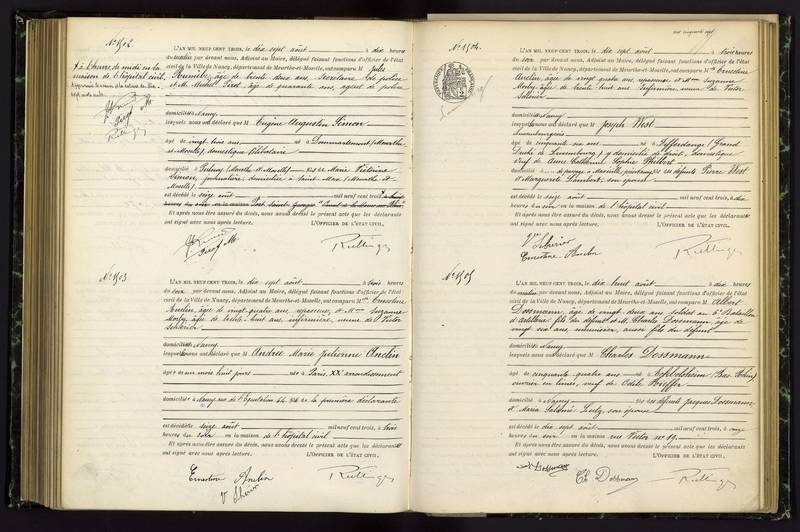 N° 1502.
+ à l'heure de midi en la
maison de l'hôpital civil.
L'AN MIL NEUF CENT TROIS, le dix sept août à dix heures
du matin par devant nous, Adjoint au Maire, délégué faisant fonctions d'officier de l'état
civil de la Ville de Nancy, département de Meurthe-et-Moselle, ont comparu M. Jules
âgé de trente deux ans, secrétaire de police
et M. Michel Pirof, âgé de quarante ans, agent de police
domiciliés à Nancy
lesquels nous ont déclaré que M Eugène Augustin Simon
âgé de vingt trois ans né à Dommartemont (Meurthe
et Moselle), domestique célibataire
domicilié à Pulnoy (Meurthe et Moselle) fils de Marie Victorine
Simon, journalière, domiciliée à Saint-Max (Meurthe et
Moselle)
est décédé le seize août mil neuf cent trois,
Et après nous être assuré du décès, nous avons dressé le présent acte que les déclarants
ont signé avec nous après lecture. L'OFFICIER DE L'ÉTAT CIVIL,
N° 1503
L'AN MIL NEUF CENT TROIS, le dix sept août à trois heures
du soir par devant nous, Adjoint au Maire, délégué faisant fonctions d'officier de l'état
civil de la Ville de Nancy, département de Meurthe-et-Moselle, ont comparu Mme Ernestine
Anelin, âgée de vingt quatre ans, repasseuse, et Mme Suzanne
Morby, âgée de trente huit ans, infirmière, veuve de Victor
domiciliées à Nancy
lesquelles nous ont déclaré que M Andrée Marie Julienne Anelin
âgée d'un mois huit jours née à Paris, XXe arrondissement
domiciliée à Nancy, rue de l'Equitation 64, fille de la première déclarante
est décédée le seize août mil neuf cent trois, à trois
heures du soir en la maison de l'hôpital civil
Et après nous être assuré du décès, nous avons dressé le présent acte que les déclarantes
ont signé avec nous après lecture. L'OFFICIER DE L'ÉTAT CIVIL,
Ernestine Anelin
N° 1504.
L'AN MIL NEUF CENT TROIS, le dix sept août à trois heures
du soir par devant nous, Adjoint au Maire, délégué faisant fonctions d'officier de l'état
civil de la Ville de Nancy, département de Meurthe-et-Moselle, ont comparu Mme Ernestine
Anelin, âgée de vingt quatre ans, repasseuse et Mme Suzanne
Morby, âgée de trente huit ans, infirmière, veuve de Victor
domiciliées à Nancy
lesquelles nous ont déclaré que M Joseph West
luxembourgeois
âgé de cinquante six ans né à Differdange (Grand
Duché de Luxembourg) y domicilié de droit, domestique
veuf de Anne Catherine Sophie
domicilié à fils des défunts Pierre West
et Marguerite Lambert, son épouse
est décédé le seize août mil neuf cent trois, à dix
heures du soir en la maison de l'hôpital civil
Et après nous être assuré du décès, nous avons dressé le présent acte que les déclarantes
ont signé avec nous après lecture. L'OFFICIER DE L'ÉTAT CIVIL,
Ernestine Anelin
N° 1505
L'AN MIL NEUF CENT TROIS, le dix huit août à dix heures
du matin par devant nous, Adjoint au Maire, délégué faisant fonctions d'officier de l'état
civil de la Ville de Nancy, département de Meurthe-et-Moselle, ont comparu M. Albert
Dossmann, âgé de vingt deux ans, soldat au 6e Bataillon
d'artillerie, fils du défunt et M. Charles Dossmann, âgé de
vingt six ans, menuisier, aussi fils du défunt
domiciliés à Nancy
lesquels nous ont déclaré que M Charles Dossmann
âgé de cinquante quatre ans né à (Bas-Rhin)
ouvrier en limes, veuf de Odile
domicilié à Nancy fils des défunts Jacques Dossmann
et Maria son épouse
est décédé le dix sept août mil neuf cent trois, à onze
heures du soir en la maison rue Victor n° 19.
Et après nous être assuré du décès, nous avons dressé le présent acte que les déclarants
ont signé avec nous après lecture. L'OFFICIER DE L'ÉTAT CIVIL,
A Dossmann
Ch Dossmann